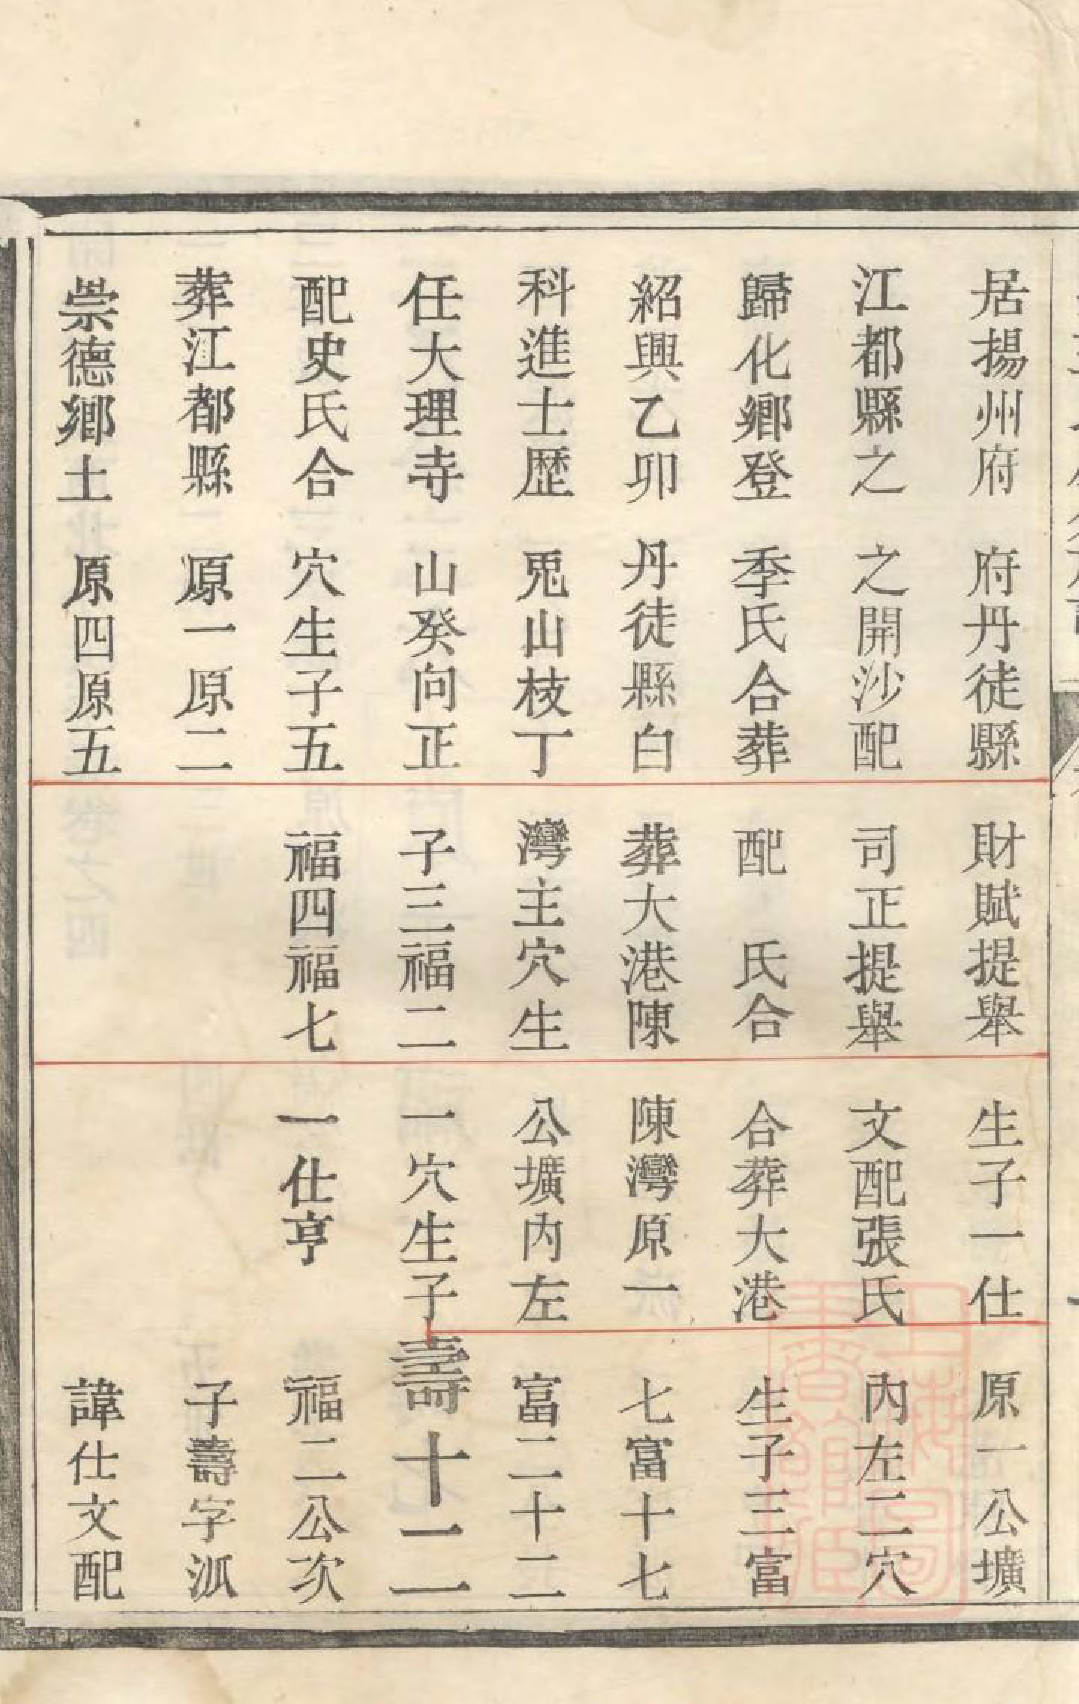 居揚州府
江都縣之
歸化鄉登
紹興乙卯
科進士歷
任大理寺
配史氏合
葬江都縣
崇德鄉土
府丹徒縣
之開沙配
季氏合葬
丹徒縣白
兎山枝丁
山癸向正
穴生子五
原一原二
原四原五
財賦提舉
司正提舉
配　氏合
葬大港陳
灣主穴生
子三福二
福四福七
生子一仕
文配張氏
合葬大港
陳灣原一
公壙內左
一穴生子
一仕亨
原一公壙
內左二穴
生子三富
七富十七
富二十二
壽十二
福二公次
子壽字泒
諱仕文配
上海圖
書館藏